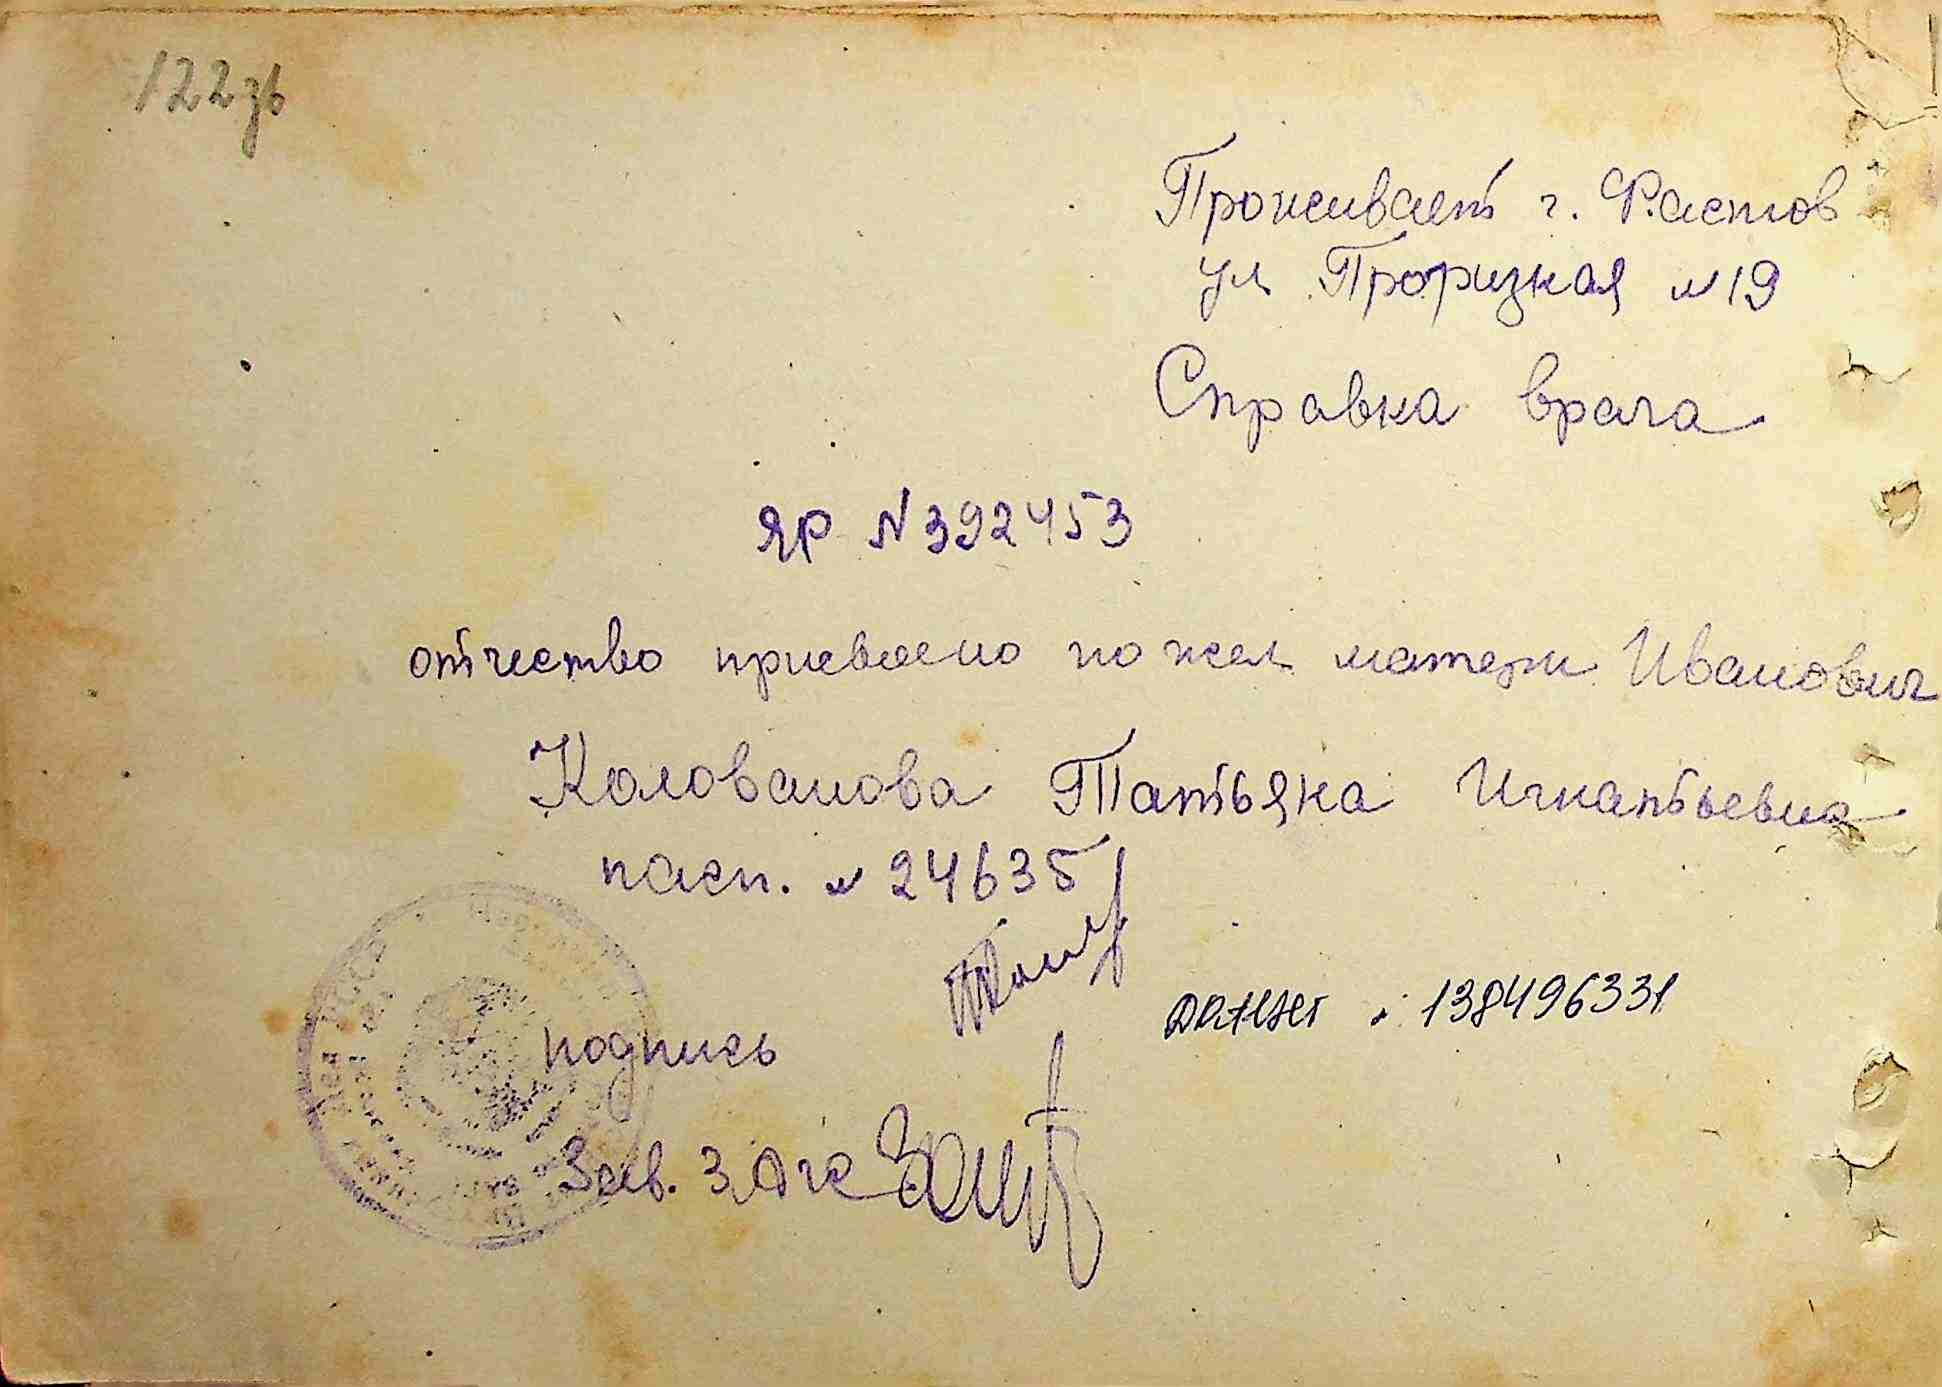 122зв
Проживает г. Фастов
ул Проризная №19
Справка врача
ЯР №392453
отчество присвоено по жел матери Иванович
Колованова Татьяна Игнатьевна
пасп. № 24635
подпись
138496331
Зав. Загс